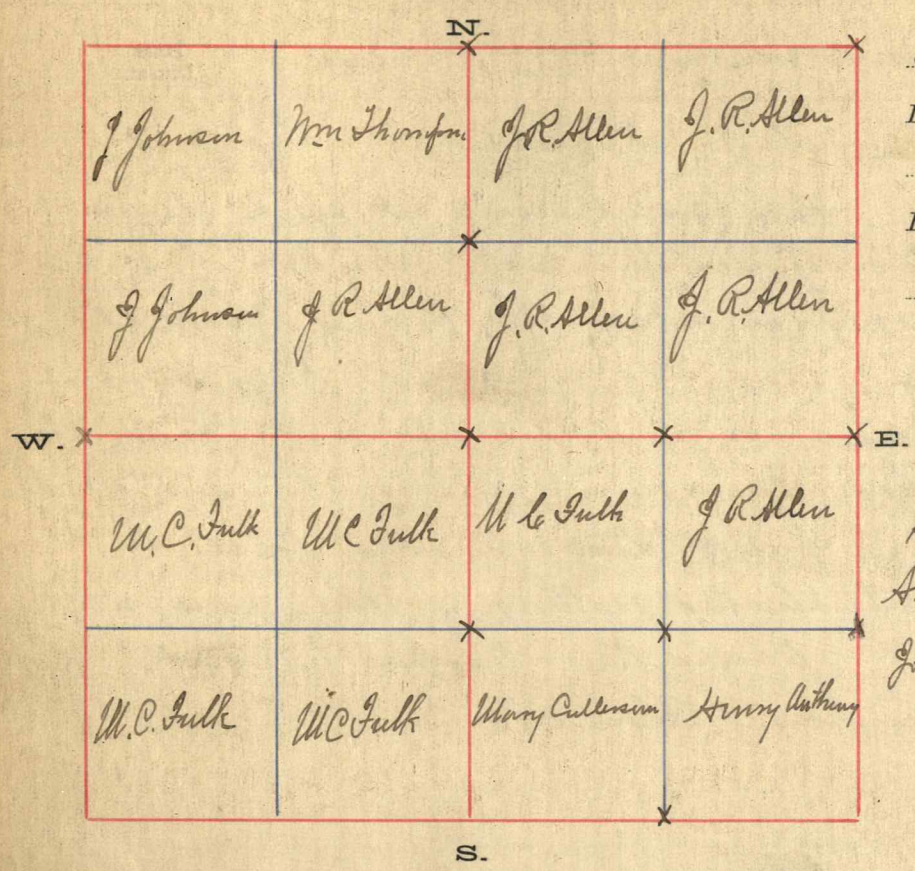 N.
J Johnson Wm Thompson J R. Allen J. R. Allen
J Johnson J R Allen J. R. Allen J. R. Allen
W. E.
M. C. Fulk M C Fulk M C Fulk J R Allen
M. C. Fulk M C Fulk Mary Cullerson Henry Anthony
S.